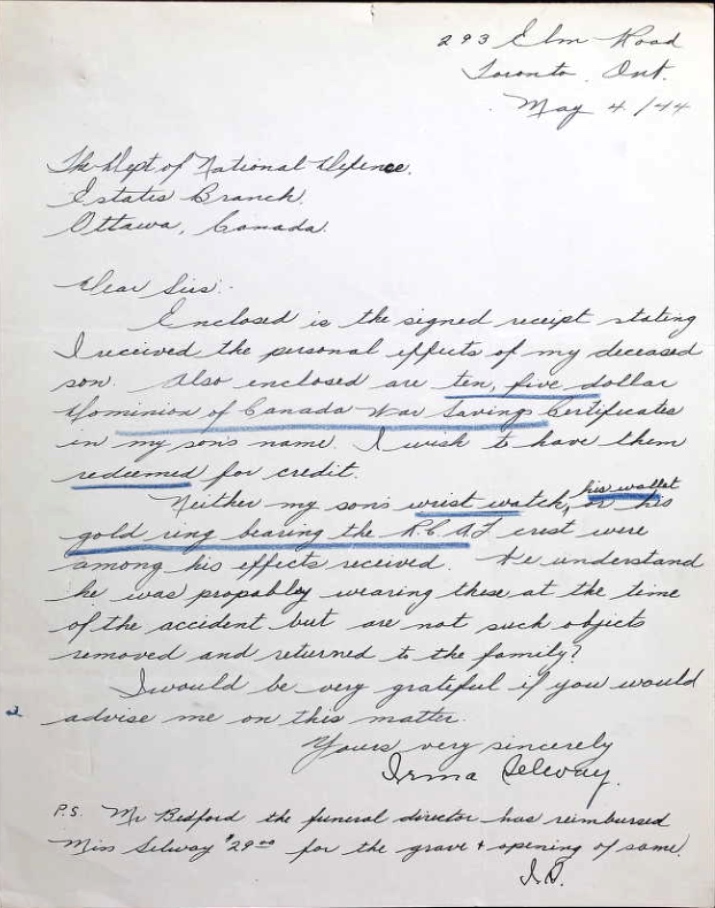 293 Elm Road
Toronto, Ont.
May 4/44
The Dept of National Defence,
Estates Branch,
Ottawa, Canada.
Dear Sirs:-
Enclosed is the signed receipt stating
I received the personal effects of my deceased
son. Also enclosed are ten, five dollar
Dominion of Canada War Savings Certificates
in my son's name. I wish to have them
redeemed for credit.
Neither my son's wrist watch, his wallet or his
gold ring bearing the R.C.A.F. crest were
among his effects received. We understand
he was propabley wearing these at the time
of the accident but are not such objects
removed and returned to the family?
I would be very grateful if you would
advise me on this matter.
Yours very sincerely
Irma Selway.
P.S. Mr Bedford the funeral director has reimbursed
Miss Selway $29.00 for the grave + opening of same.
I.S.